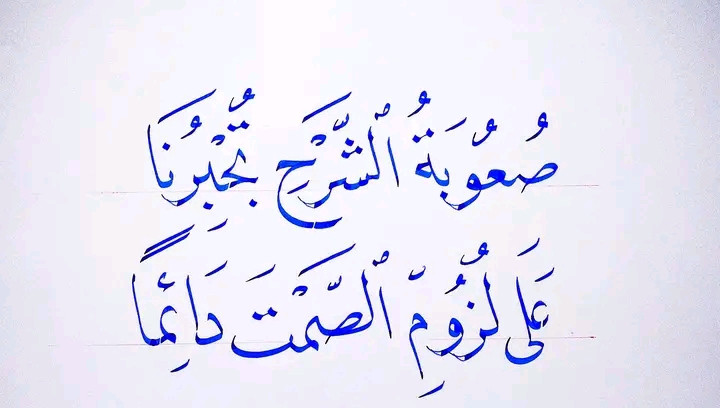 صُعُوبَةُ ٱلشَّرْحِ تُجْبِرُنَا
عَلَى لُزُومِ ٱلصَّمْتَ دَائِمًا